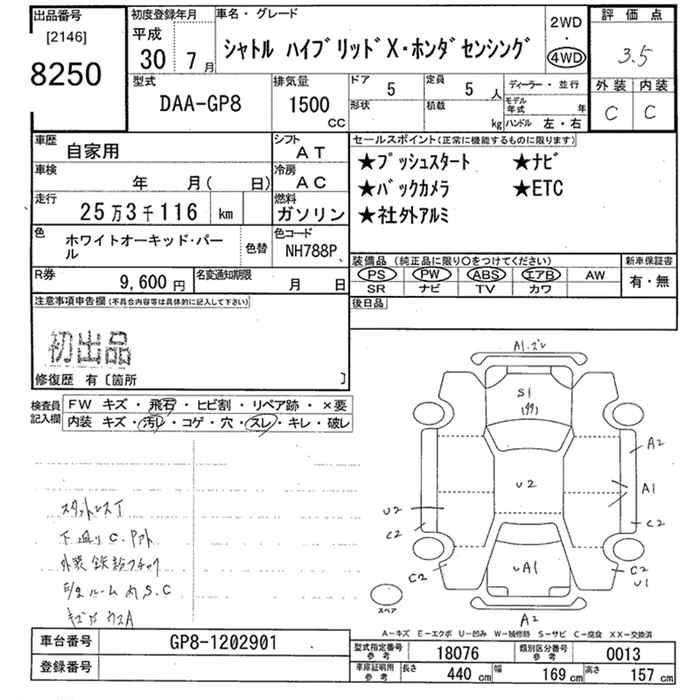 出品番号
[2146]
8250
初度登録年月
平成
30 7月
車名・グレード
シャトル ハイブリッドX・ホンダセンシング
2WD
・
4WD
評価点
3.5
外装 内装
C C
型式
DAA-GP8
排気量
1500
CC
ドア
5
形状
定員
5 人
積載
kg
ディーラー・並行
モデル年式 年
ハンドル 左・右
車歴
自家用
シフト
AT
車検
年 月( 日)
冷房
AC
走行
25万3千116 km
燃料
ガソリン
色
ホワイトオーキッド・パール
色替
色コード
NH788P
R券
9,600円
名変通知期限
月 日
セールスポイント(正常に機能するものに限ります)
★プッシュスタート ★ナビ
★バックカメラ ★ETC
★社外アルミ
装備品(純正品に限り○をつけてください)
PS PW ABS エアB AW
SR ナビ TV カワ
新車保証書
有・無
後日品
注意事項申告欄(不具合内容等は具体的に記入して下さい)
初出品
修復歴 有〔箇所 〕
検査員記入欄
FW キズ・飛石・ヒビ割・リペア跡・×要
内装 キズ・汚レ・コゲ・穴・スレ・キレ・破レ
スタットレスT
下廻りC.
外装
ルーム内S.C
A1.ズレ
S1
A2
U2
A1
U2
C2
C2
C2
UA1
C2
U1
A2
スペア
A-キズ E-エクボ U-凹み W-補修跡 S-サビ C-腐食 XX-交換済
車台番号
GP8-1202901
登録番号
型式指定番号
参考
18076
類別区分番号
参考
0013
車庫証明用
参考
長さ 440 cm 幅 169 cm 高さ 157 cm